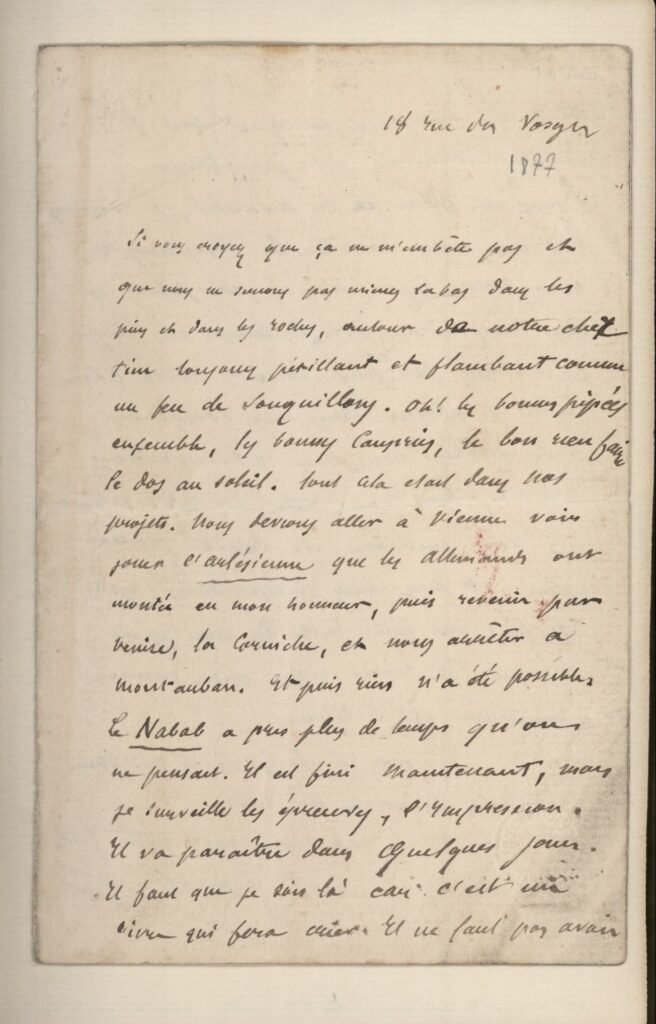 18 rue des Vosges
1877
Si vous croyez que ça ne m'embête pas et
que nous ne serions pas mieux labas dans les
pins et dans les roches, autour de notre
toujours pétillant et flambant comme
un feu de souquillons. Oh! les bonnes pipées
ensemble, les bonnes causeries, le bon rien faire
le dos au soleil. Tout cela était dans nos
projets. Nous devions aller à Vienne voir
jouer l'arlésienne que les allemands ont
montée en mon honneur, puis revenir par
Venise, la Corniche, et nous arrêter a
montauban. Et puis rien n'a été possible.
Le Nabab a pris plus de temps qu'on
ne pensait. Il est fini maintenant, mais
je surveille les épreuves, l'impression.
Il va paraître dans quelques jours.
Il faut que je sois là car c'est un
livre qui fera crier. Il ne faut pas avoir